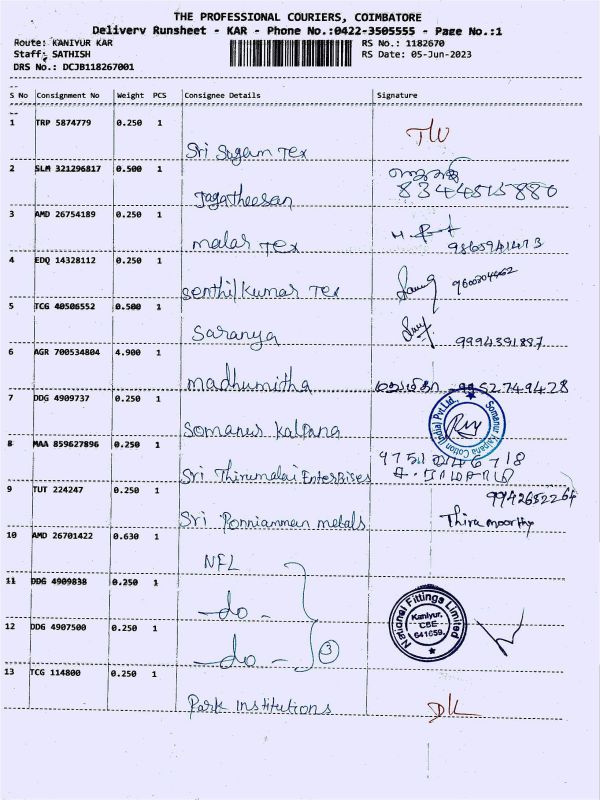 THE PROFESSIONAL COURIERS, COIMBATORE
Delivery Runsheet - KAR - Phone No.:0422-3505555 - Page No.:1
Route: KANIYUR KAR RS No.: 1182670
Staff: SATHISH RS Date: 05-Jun-2023
DRS No.: DCJB118267001
S No Consignment No Weight PCS Consignee Details Signature
1 TRP 5874779 0.250 1
Sri Sugam Tex
2 SLM 321296817 0.500 1
Jagatheesan
3 AMD 26754189 0.250 1
malar Tex
4 EDQ 14328112 0.250 1
Senthil Kumar Tex
5 TCG 40506552 0.500 1
Saranya 9994391887
6 AGR 700534804 4.900 1
madhumitha மதுமிதா 9952749428
7 DDG 4909737 0.250 1
Somanur Kalpana Cotton (India) Pvt. Ltd.,
Somanur Kalpana
8 MAA 859627896 0.250 1
Sri Thirumalai Enterprises
9 TUT 224247 0.250 1
Sri Ponniamman metals Thiramoorthy
10 AMD 26701422 0.630 1
NFL
11 DDG 4909838 0.250 1
-do-
National Fittings Limited
Kaniyur,
CBE
641659.
12 DDG 4907500 0.250 1
-do- 3
13 TCG 114800 0.250 1
Park Institutions DK